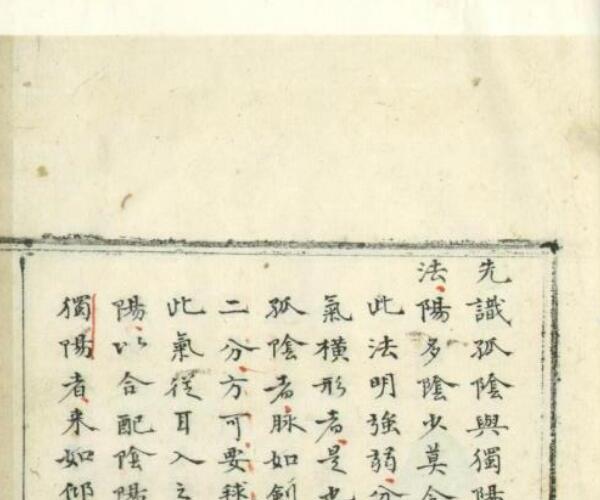 先識孤陰與獨陽
法陽多陰少莫
此法明強弱分
氣橫形者是也
孤陰者脉如劍
二分方可要
此氣從耳入
陽以合配陰陽
獨陽者来如仰